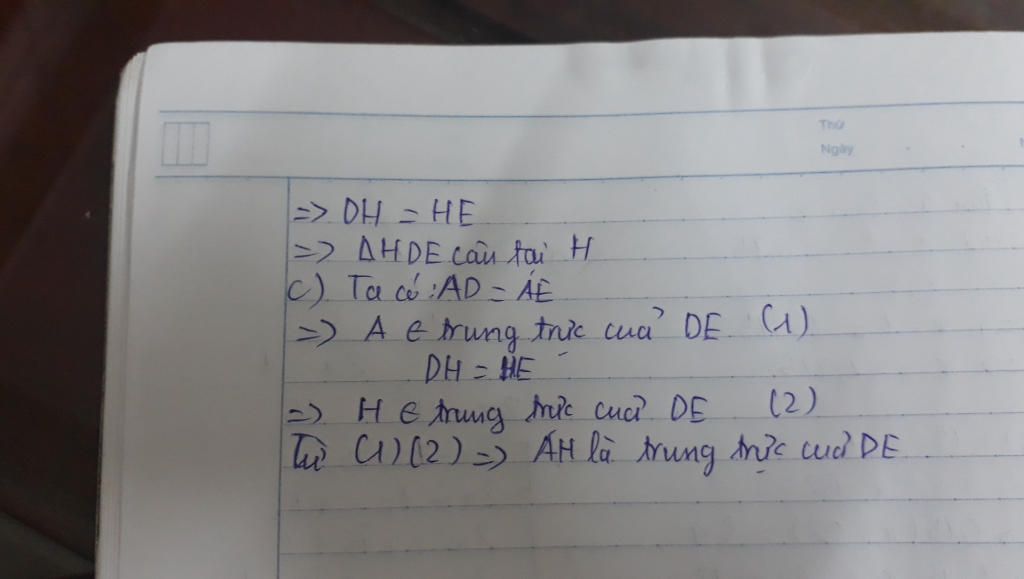 Thứ
Ngày
=> DH = HE
=> ΔHDE cân tại H
c) Ta có: AD = AE
=> A ∈ trung trực của DE (1)
DH = HE
=> H ∈ trung trực của DE (2)
Từ (1)(2) => AH là trung trực của DE